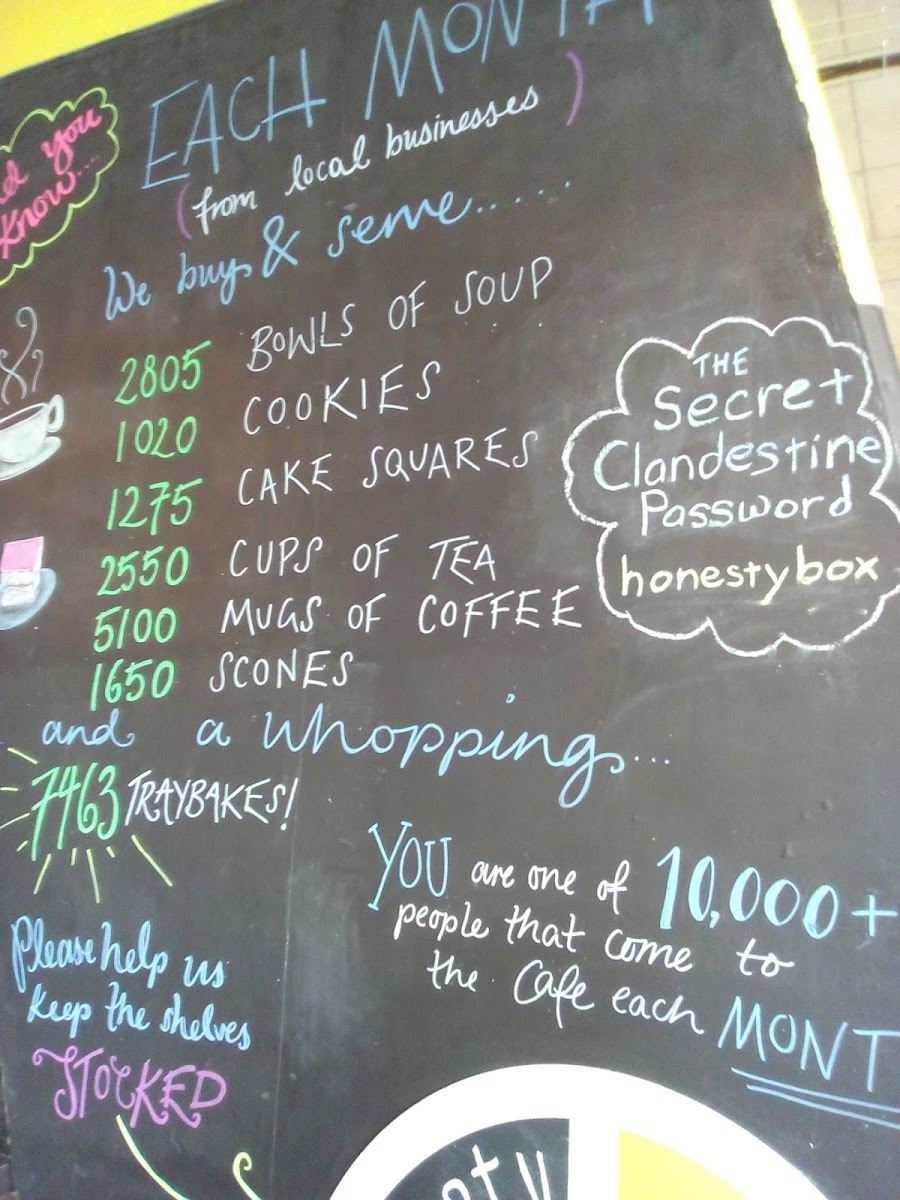 EACH MONTH
(from local businesses)
you
Know....
We buy & serve......
2805 BOWLS OF SOUP
1020 COOKIES
1275 CAKE SQUARES
2550 CUPS OF TEA
5100 MUGS OF COFFEE
1650 SCONES
and a whopping...
7463 TRAYBAKES!
THE
Secret
Clandestine
Password
honestybox
YOU are one of 10,000+
people that come to
the Cafe each MONT
Please help us
keep the shelves
STOCKED